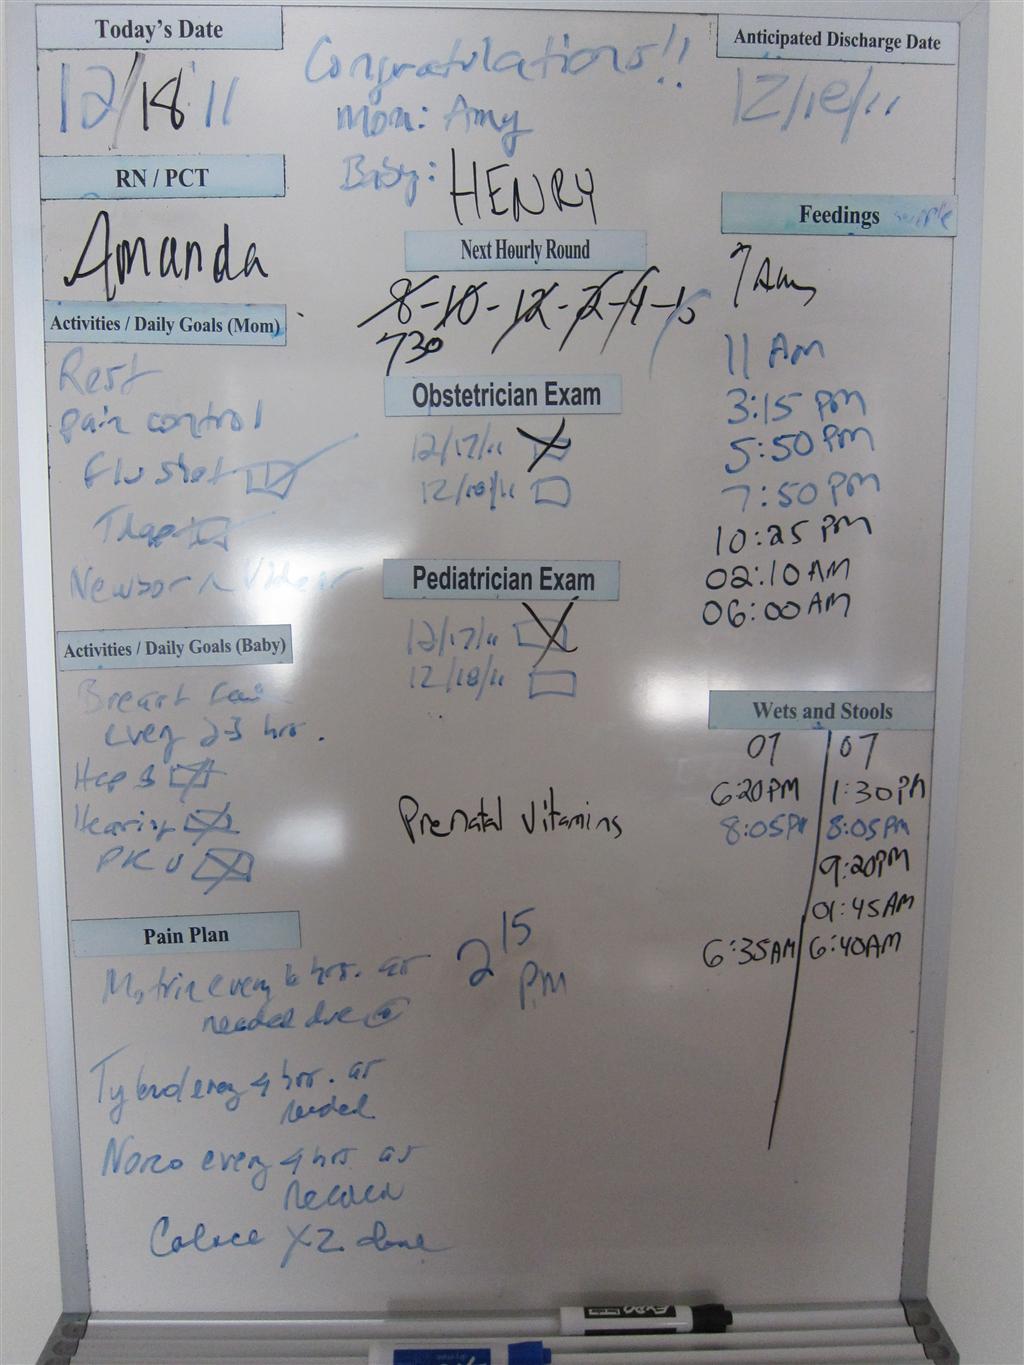 Today's Date
12/18/11
Congratulations!!
Mom: Amy
Baby: HENRY
Anticipated Discharge Date
12/18/11
RN / PCT
Amanda
Activities / Daily Goals (Mom)
Rest
pain control
Flu shot
Tdap
Newborn Video
Activities / Daily Goals (Baby)
Breast
every 2-3 hr.
Hep B
Hearing
PKU
Pain Plan
Motrin every 6 hrs. as
needed due @
2 15 PM
Tylenol every 4 hrs. as
needed
Norco every 4 hrs as
needed
Colace X2 dose
Next Hourly Round
8-10-12-2-4-
730
Obstetrician Exam
12/17/11
12/18/11
Pediatrician Exam
12/17/11
12/18/11
Prenatal Vitamins
Feedings
7 Am
11 AM
3:15 PM
5:50 PM
7:50 PM
10:25 PM
02:10 AM
06:00 AM
Wets and Stools
07 07
6:20PM 1:30PM
8:05PM 8:05PM
9:20PM
01:45AM
6:35AM 6:40AM
EXPO